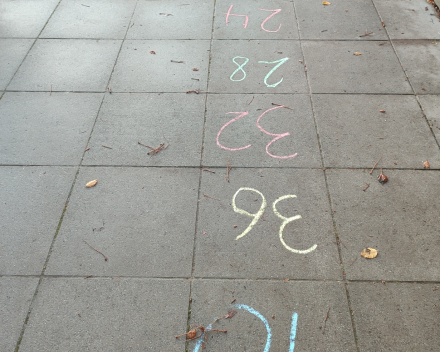 36
32
28
24